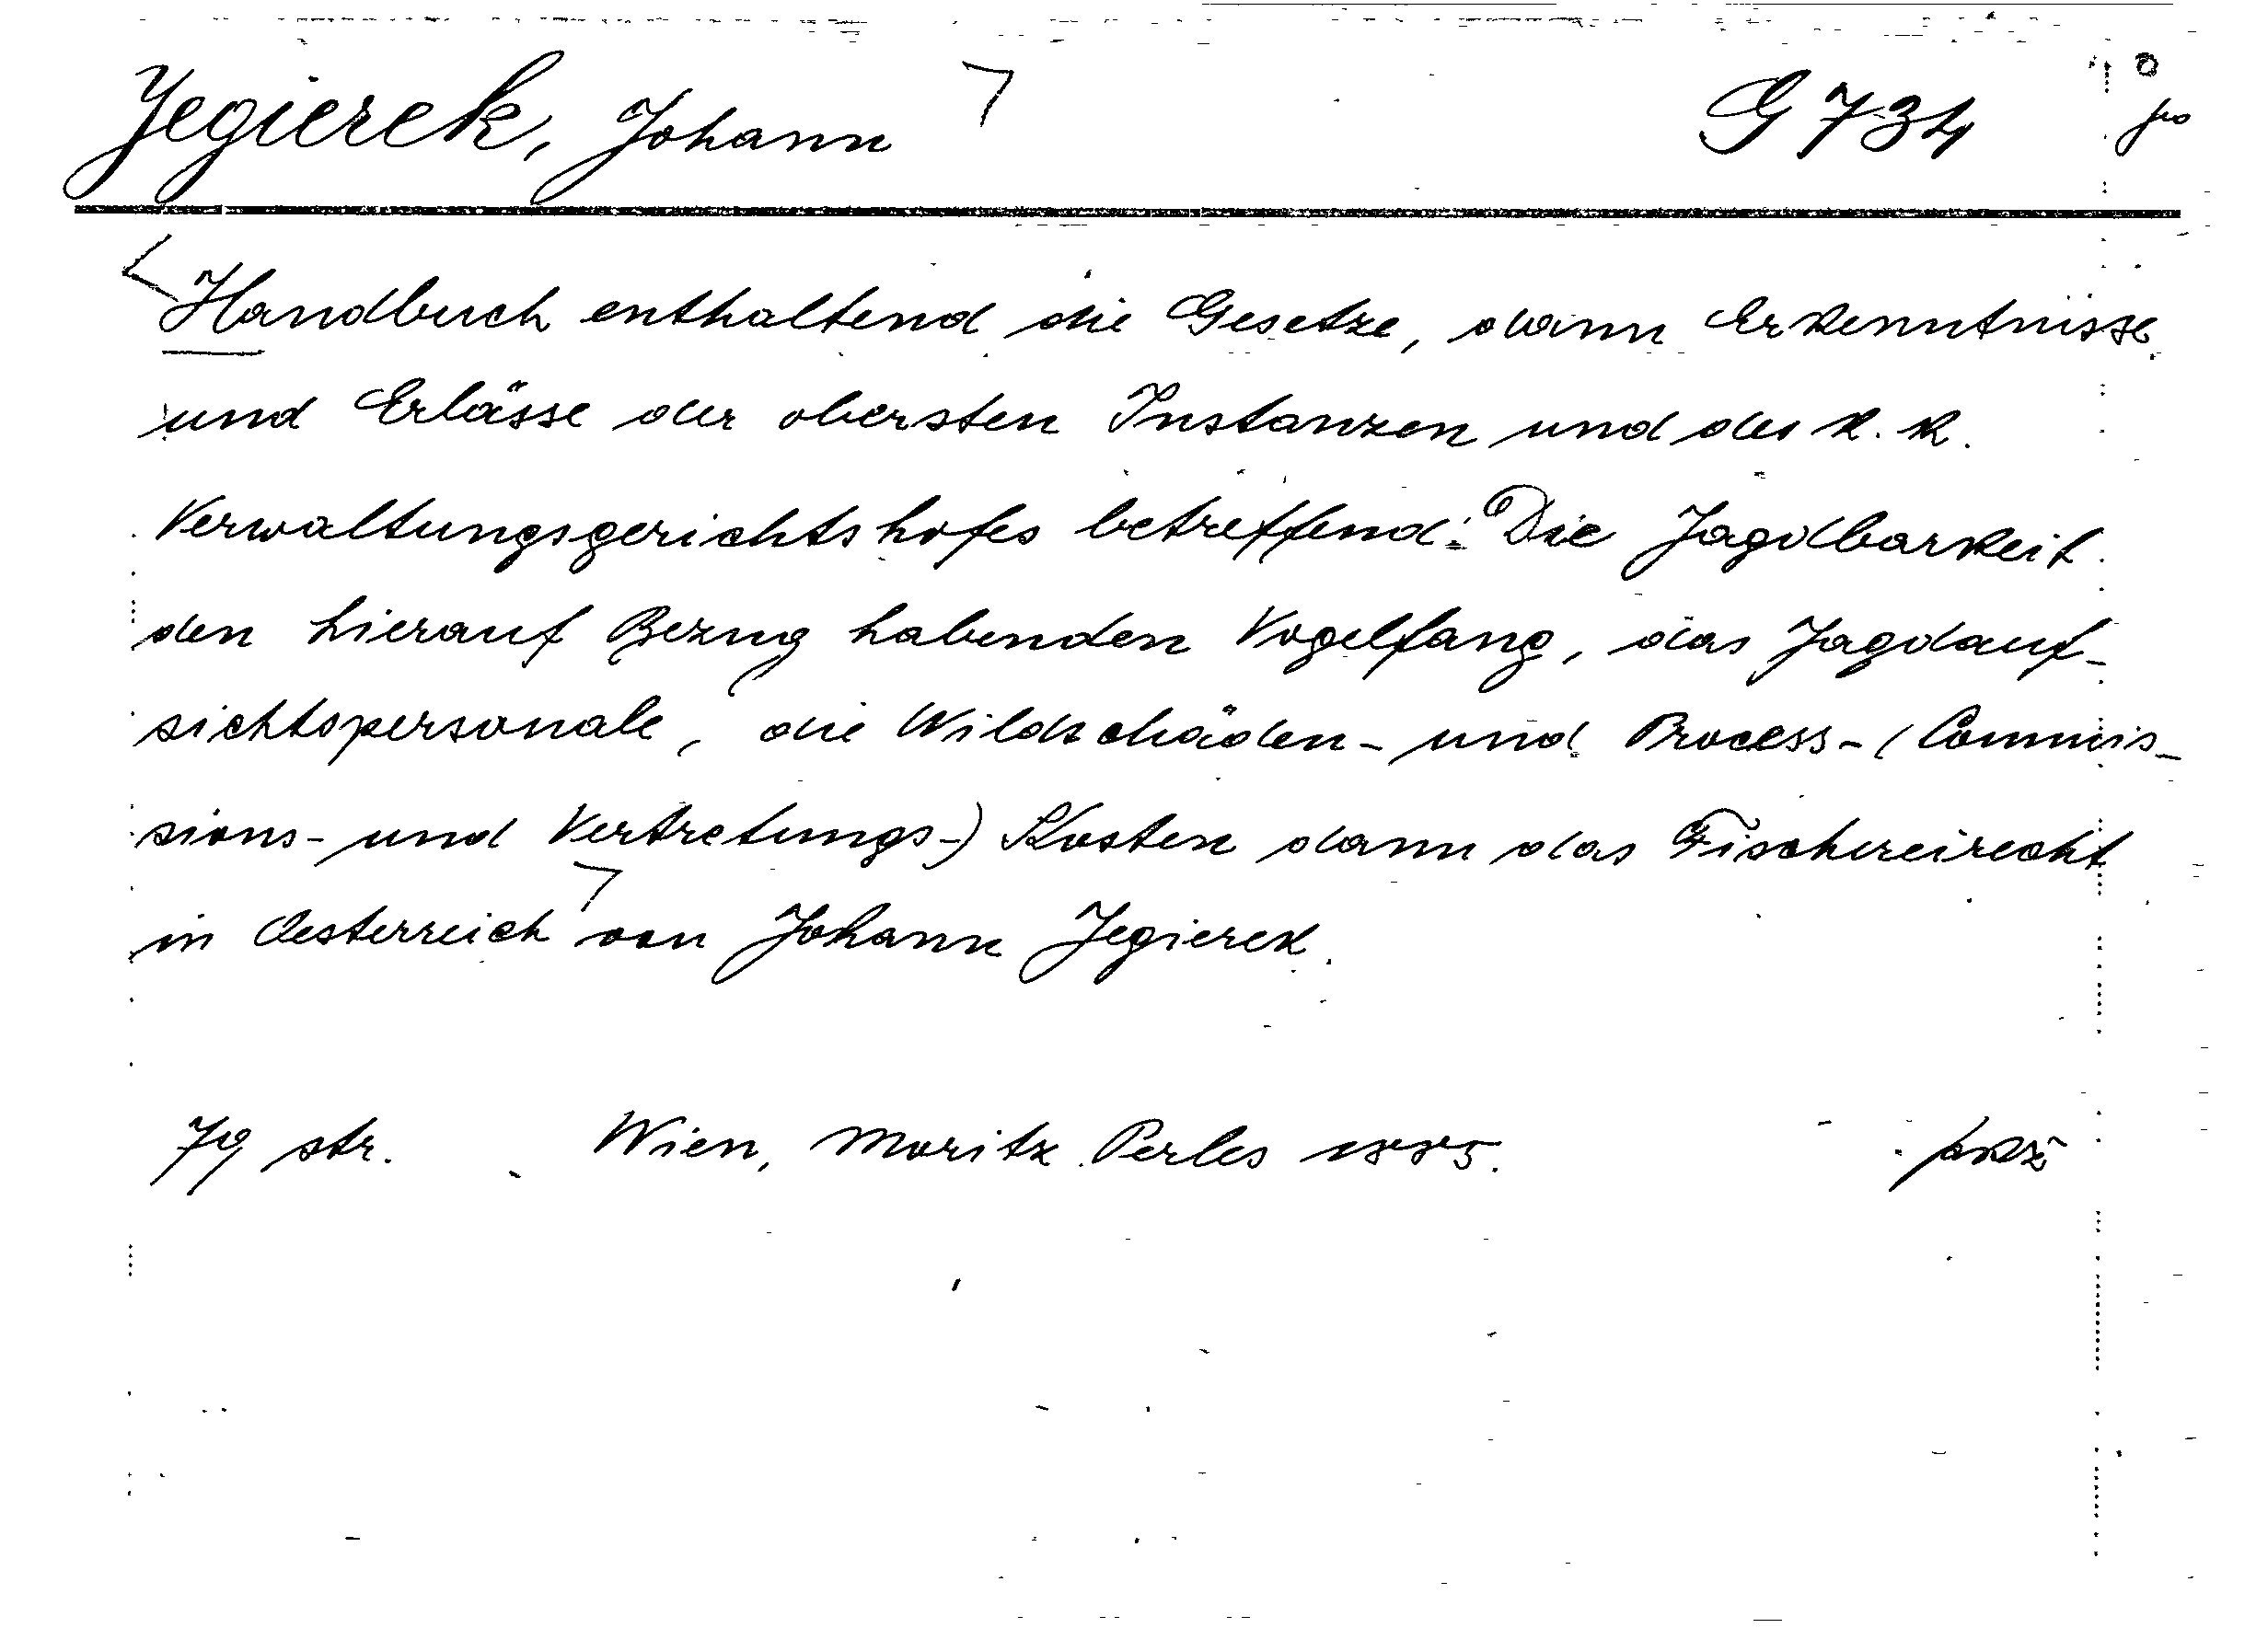 Jegierek, Johann G 734
Handbuch enthaltend die Gesetze, dann Erkenntnisse
und Erlässe der obersten Instanzen und des k. k.
Verwaltungsgerichtshofes betreffend: Die Jagdbarkeit
den hierauf Bezug habenden Vogelfang, das Jagdauf-
sichtspersonale, die Wildschäden- und Process- (Commis-
sions- und Vertretungs-) Kosten dann das Fischereirecht
in Oesterreich von Johann Jegierek.
79 str. Wien, Moritz Perles 1885.